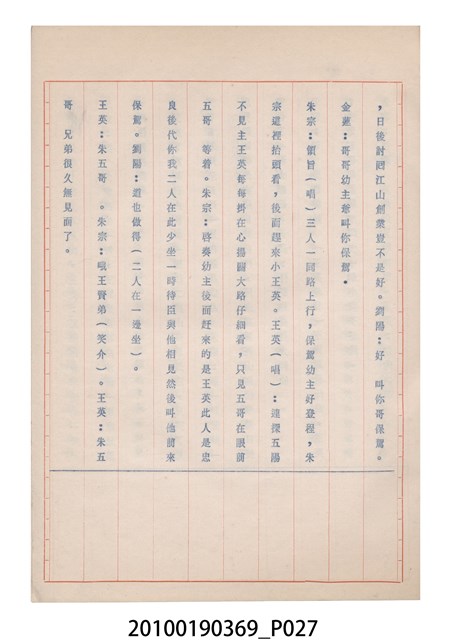 ，日後討囘江山創業豈不是好。劉陽：好　叫你哥保駕。
金蓮：哥哥幼主爺叫你保駕。
朱宗：領旨（唱）三人一同路上行，保駕幼主好登程，朱
宗這裡抬頭看，後面趕來小王英。王英（唱）：連探五陽
不見主王英每每掛在心揚開大路仔細看，只見五哥在眼前
五哥　等着。朱宗：啓奏幼主後面赶來的是王英此人是忠
良後代你我二人在此少坐一時待臣與他相見然後叫他前來
保駕。劉陽：這也做得（二人在一邊坐）。
王英：朱五哥　。朱宗：哦王賢弟（笑介）。王英：朱五
哥　兄弟很久無見面了。
20100190369_P027